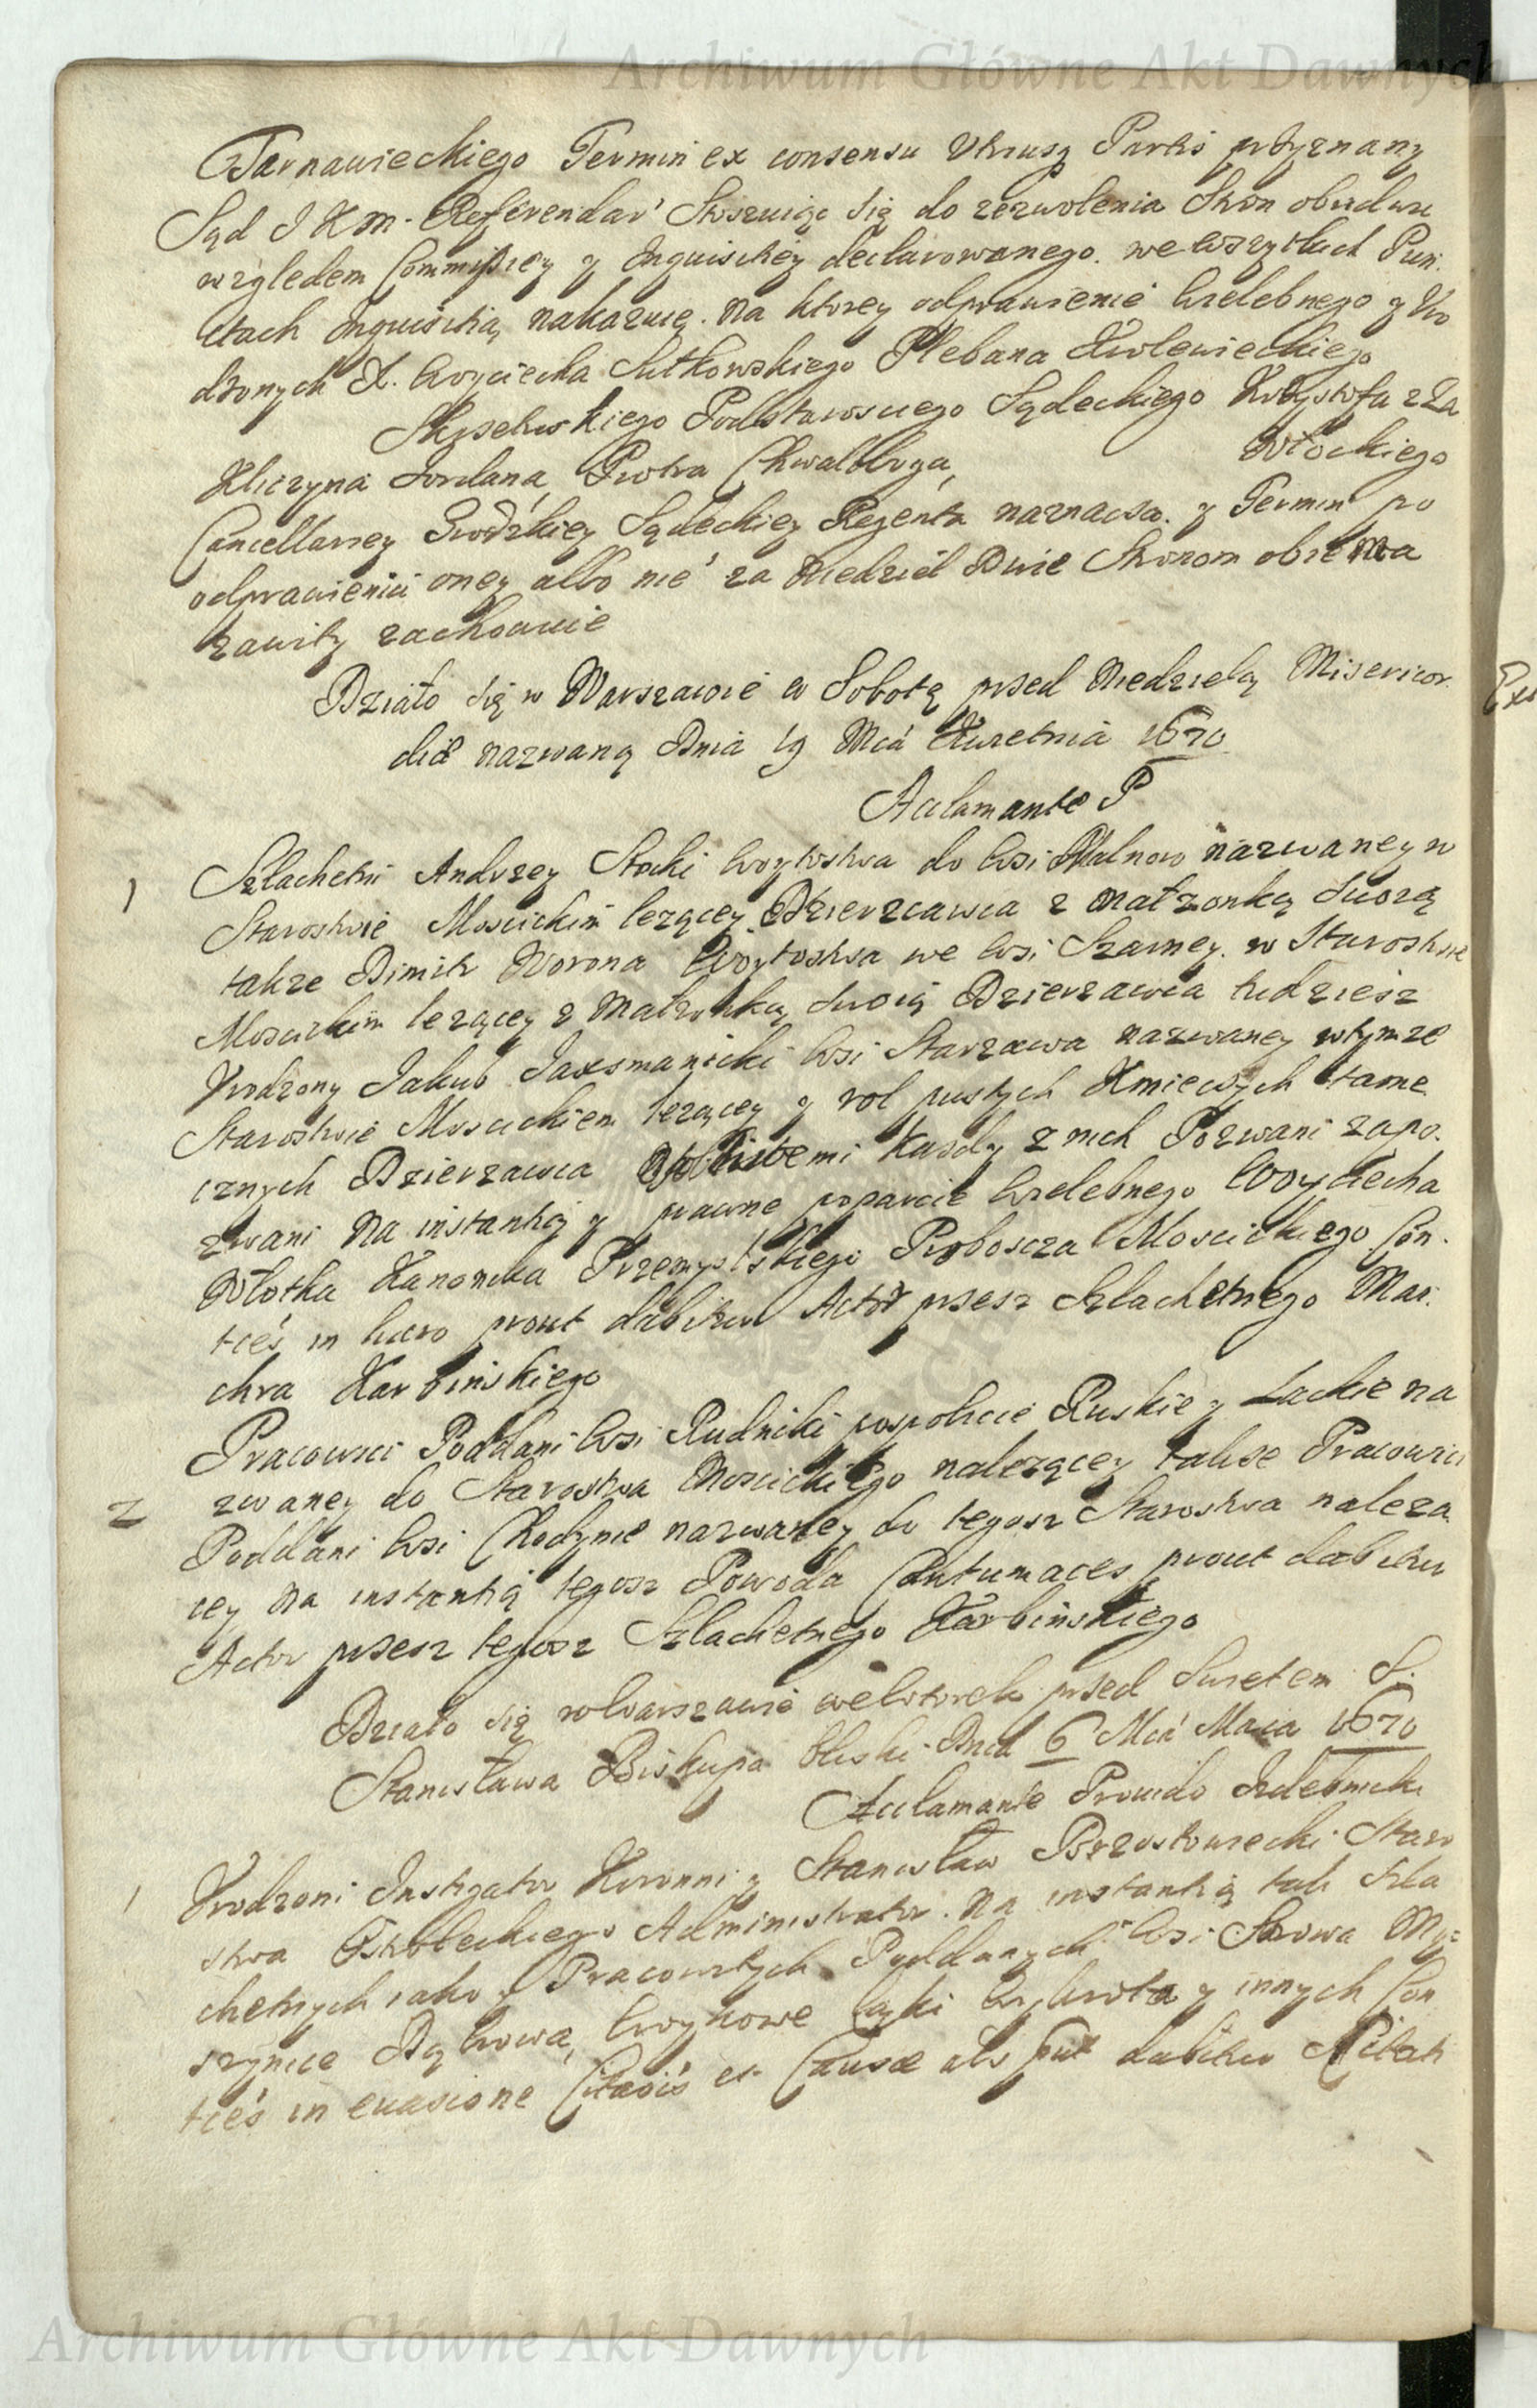 Archiwum Główne Akt Dawnych
Tarnawieckiego Termin ex consensu Utriusq Partis przyznany
Sąd J K M. Referendar' Stosuiąc się do zezwolenia Stron obudwu
względem Commissiey y Inquisitiey declarowanego. we wszytkich Pun.
ctach Inquisitią nakazuie. Na ktorey odprawienie Wielebnego y Uro
dzonych X. Woyciecha Sutkowskiego Plebana Krolewieckiego
Podstarosciego Sądeckiego Krzysztofa z Za
kliczyna Jordana, Piotra Chwaliboga, Włockiego
Cancellariey Grodzkiey Sądeckiey Regenta naznacza. y Termin po
odprawieniu oney albo nie za Niedziel Dwie Stronom obiema
zawity zachowuie
Działo się w Warszawie w Sobotę przed Niedzielą Misericor.
diæ nazwaną Dnia 19 Mca Kwietnia 1670
Aclamante P
1 Szlachetni Andrzey Stocki Woytostwa do Wsi Malnow nazwaney w
Starostwie Moscickim lezącey Dzierzawca z Małzonką Swoią
takze Dimitr Worona Woytostwa we Wsi Czarney. w Starostwie
Moscickim lezącey z Małzonką Swoią Dzierzawca tudziesz
Urodzony Jakub Jaxmanicki Wsi Starzawa nazwaney wtymze
Starostwie Moscickiem lezącey y rol pustych Kmiecych tame
cznych Dzierzawca Osobistemi kazdy z nich Pozwani zapo.
zwani Na instantią y prawne poparcie Wielebnego Woyciecha
Włotka Kanonika Przemyslskiego Proboscza Moscickiego Con.
ties in lucro prout dabitur Actor przesz Szlachetnego Mal.
chra Karbinskiego
Pracowici Poddani Wsi Rudniki pospolicie Ruskie y Lackie na
2 zwaney do Starostwa Moscickiego nalezącey takse Pracowici
Poddani Wsi Chodynie nazwaney do tegosz Starostwa naleza.
cey Na instantią tegosz Powoda Contumaces prout dabitur
Actor przesz tegosz Szlachetnego Karbinskiego
Działo się w Warszawie we Wtorek przed Swietem S.
Stanisława Biskupa bliski Dnia 6 Mca Maia 1670
Aclamante Provido Izdebnicki
1 Urodzeni Instigator Koronni y Stanisław Brzostowiecki Staro
stwa Administrator. Na instantią tak Szla
chetnych iako y Pracowitych Poddanych Wsi My:
szynice Dąbrowa, Woykowe Łąki y innych Con
ties in euasione Citaois et Causæ als put dabitur Citati
Archiwum Główne Akt Dawnych